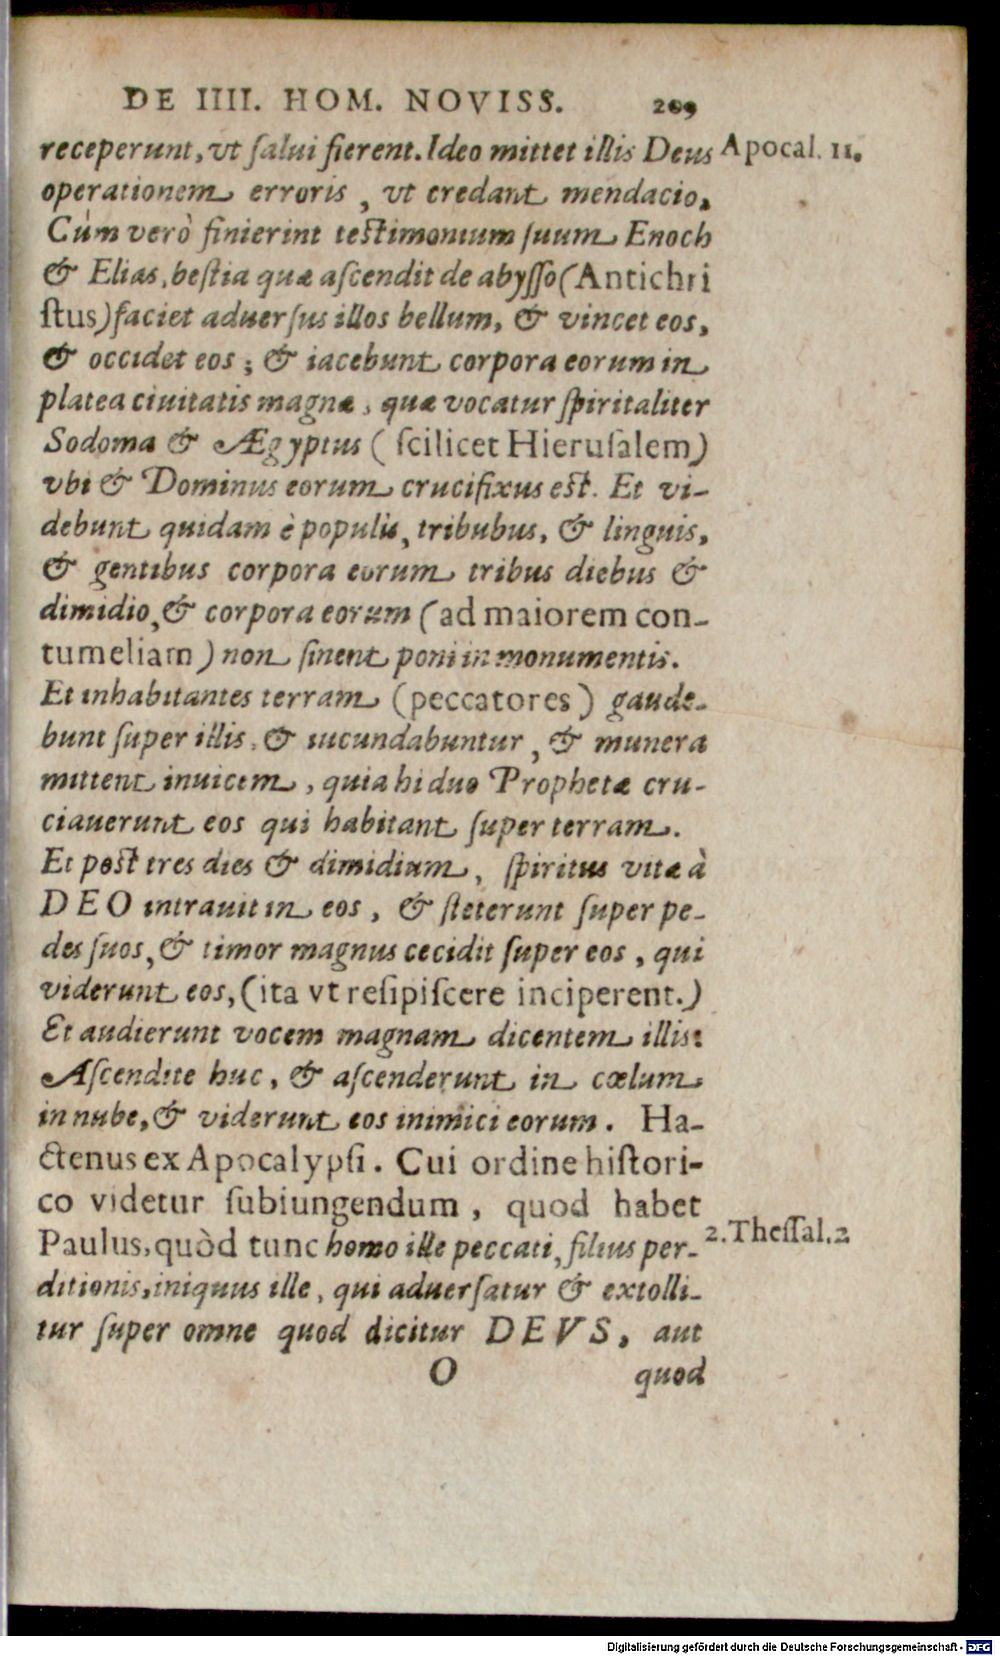 DE IIII. HOM. NOVISS. 209
receperunt, vt ſalui fierent. Ideo mittet illis Deus
Apocal. 11.
operationem erroris, vt credant mendacio.
Cùm verò finierint teſtimonium ſuum Enoch
& Elias, beſtia quæ aſcendit de abyſſo (Antichri
ſtus) faciet aduerſus illos bellum, & vincet eos,
& occidet eos; & iacebunt corpora eorum in
platea ciuitatis magnæ, quæ vocatur ſpiritaliter
Sodoma & Ægyptus (ſcilicet Hieruſalem)
vbi & Dominus eorum crucifixus eſt. Et vi-
debunt quidam è populis, tribubus, & linguis,
& gentibus corpora eorum tribus diebus &
dimidio, & corpora eorum (ad maiorem con-
tumeliam) non ſinent poni in monumentis.
Et inhabitantes terram (peccatores) gaude-
bunt ſuper illis, & iucundabuntur, & munera
mittent inuicem, quia hi duo Prophetæ cru-
ciauerunt eos qui habitant ſuper terram.
Et poſt tres dies & dimidium, ſpiritus vitæ à
DEO intrauit in eos, & ſteterunt ſuper pe-
des ſuos, & timor magnus cecidit ſuper eos, qui
viderunt eos, (ita vt reſipiſcere inciperent.)
Et audierunt vocem magnam dicentem illis:
Aſcendite huc, & aſcenderunt in cœlum
in nube, & viderunt eos inimici eorum. Ha-
ctenus ex Apocalypſi. Cui ordine hiſtori-
co videtur ſubiungendum, quod habet
Paulus, quòd tunc homo ille peccati, filius per-
2. Theſſal. 2
ditionis, iniquus ille, qui aduerſatur & extolli-
tur ſuper omne quod dicitur DEVS, aut
O quod
Digitalisierung gefördert durch die Deutsche Forschungsgemeinschaft - DFG